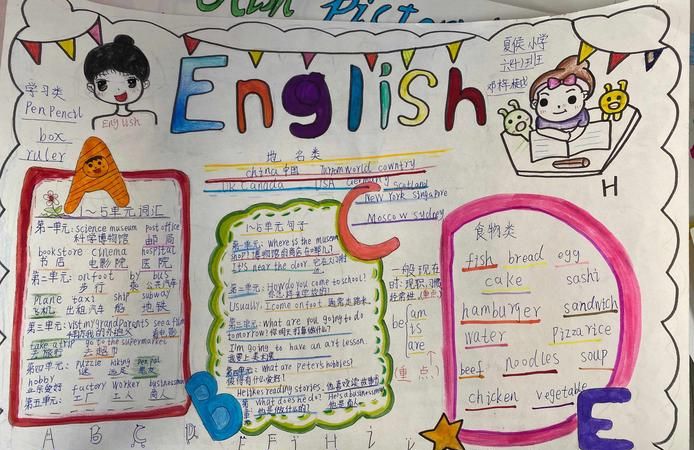 English
夏侯小学
学习类
Pen Pencil
box
ruler
English
地名类
china 中国 world country
UK Canada USA Germany scotland
New York singapore
Moscow sydney
A
1～5单元词汇
第一单元: science museum post office
科学博物馆 邮局
bookstore cinema hospital
书店 电影院 医院
第二单元: on foot by bus
步行 乘公共汽车
plane taxi ship subway
飞机 出租汽车 船 地铁
第三单元: visit my grandparents see a film
take a trip go to the supermarket
去旅行 去超市
第四单元: puzzle hiking pen pal
hobby
业余爱好
factory worker businessman
第五单元: 工厂 工人 商人
B
1～5单元句子
第一单元: Where is the museum
shop? 博物馆的商店在哪儿?
It's near the door.
第二单元: How do you come to school?
Usually, I come on foot. 通常走路来。
第三单元: What are you going to do
tomorrow? 你明天打算做什么?
I'm going to have an art lesson.
我要上美术课
第四单元: What are Peter's hobbies?
彼得有什么爱好?
He likes reading stories. 他喜欢读故事
What does he do? He is a businessman
他是做什么的? 他是商人
C
一般现在
时:
be
am
is
are
(重点)
H
食物类
fish bread egg
cake sashi
hamburger sandwich
water pizza rice
beef noodles soup
chicken vegetable
E
A B C D E F H